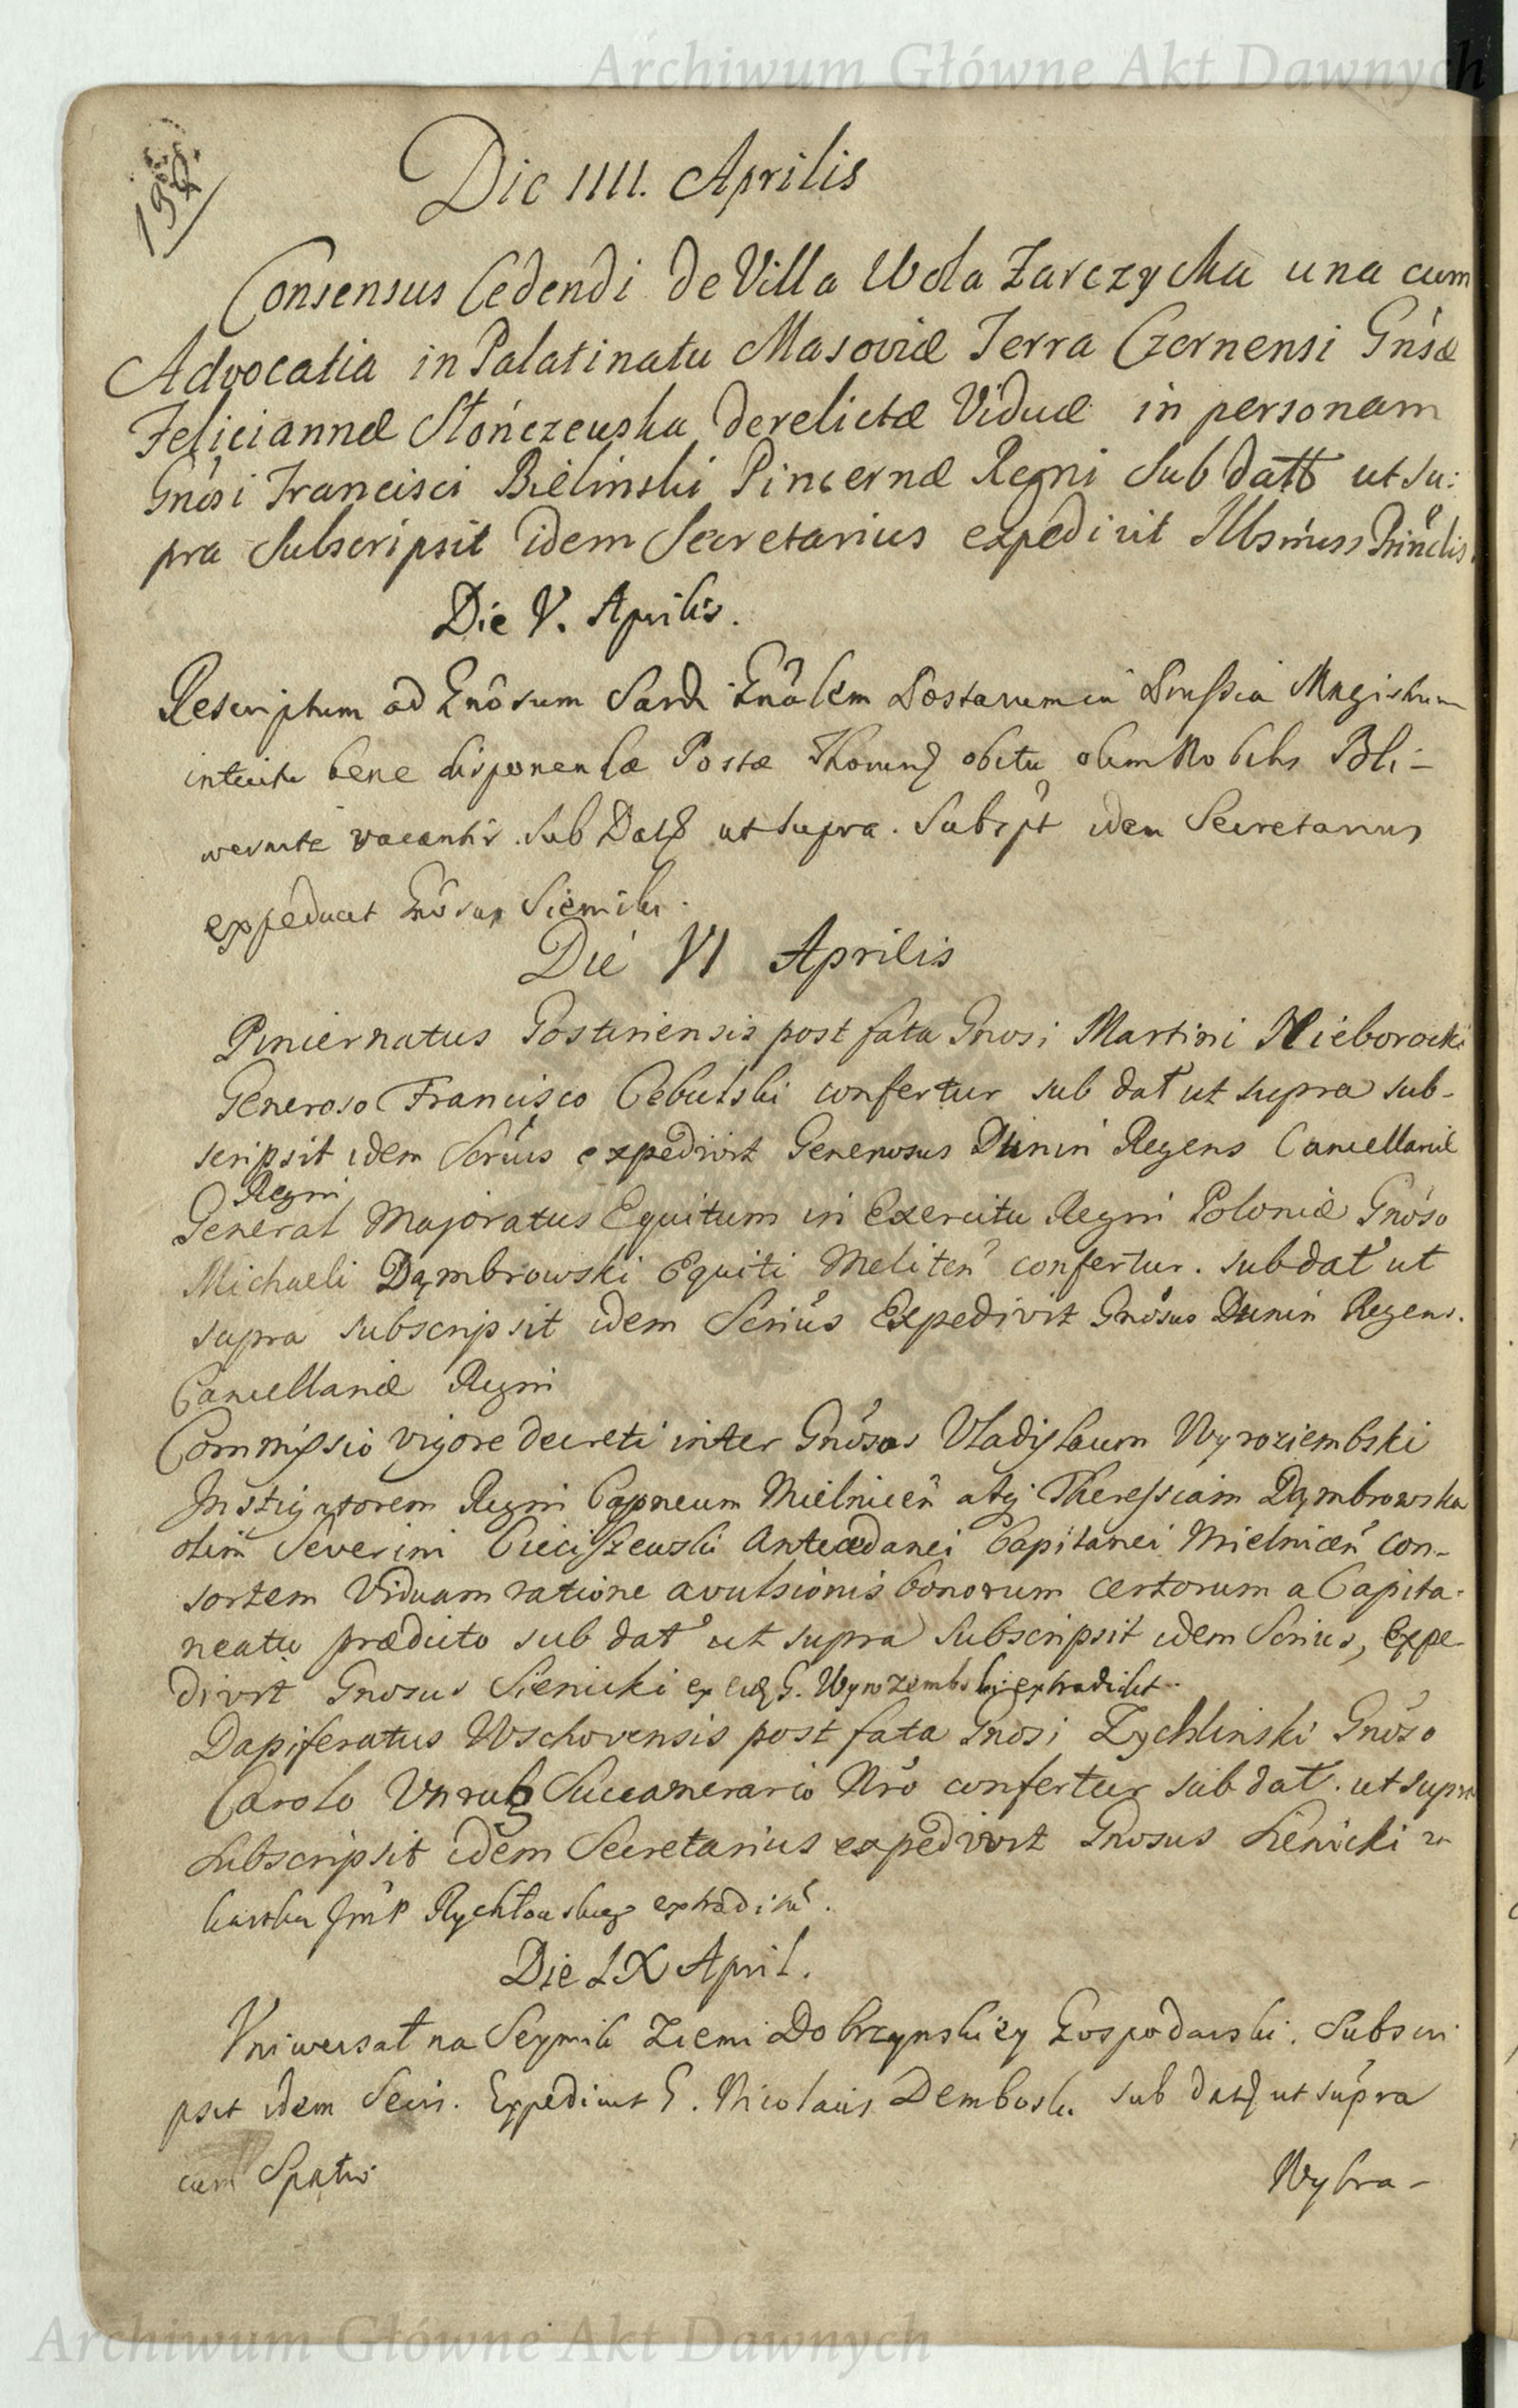 Archiwum Główne Akt Dawnych
Die IIII. Aprilis
Consensus Cedendi de Villa Wola Zarczycka una cum
Advocatia in Palatinatu Masoviæ Terra Czernensi Gnsæ
Feliciannæ Słończewska derelictæ Viduæ in personam
Gnosi Francisci Bielinski Pincernæ Regni Sub datt ut su:
pra Subscripsit idem Secretarius expedivit
Die V. Aprilis.
Rescriptum ad Gnosum Gnalem Postarum in Prussia Magistrum
intuitu bene disponendæ Postæ obitu olim Nobilis
vacantis. Sub Dat ut supra. Subspt idem Secretarius
expediut
Die VI Aprilis
Pincernatus Gostinensis post fata Gnosi Martini Nieborocki
Generoso Francisco Cebulski confertur sub dat ut supra sub-
scripsit idem Scrius expedivit Generosus Dunin Regens Cancellariæ
Regni
General Majoratus Equitum in Exercitu Regni Poloniæ Gnoso
Michaeli Dąmbrowski Equiti Meliten confertur. sub dat ut
supra subscripsit idem Scrius Expedivit Gnosus Dunin Regens.
Cancellariæ Regni
Commissio vigore decreti inter Gnosos Vladislaum Wyroziembski
Instigatorem Regni Capneum Mielnicen atq Theressiam Dąmbrowska
olim Severini Cieciszewski Antecedanei Capitanei Mielnicen con-
sortem Viduam ratione avulsionis bonorum certorum a Capita-
neatu prædicto sub dat ut supra Subscripsit idem Scrius, Expe-
divit Gnosus Sienicki G. Wyrozembski extradidit.
Dapiferatus Wschovensis post fata Gnosi Zychlinski Gnoso
Carolo Unrug Succamerario Nro confertur sub dat. ut supra
Subscripsit idem Secretarius expedivit Gnosus Sienicki za
kartką JmP
Die IX April.
Vniwersał na Seymik Ziemi Dobrzynskiey Gospodarski. Subscri
psit idem Secr. Expediuit G. Nicolaus Demboski sub dat ut supra
cum
Wybra-
Archiwum Główne Akt Dawnych